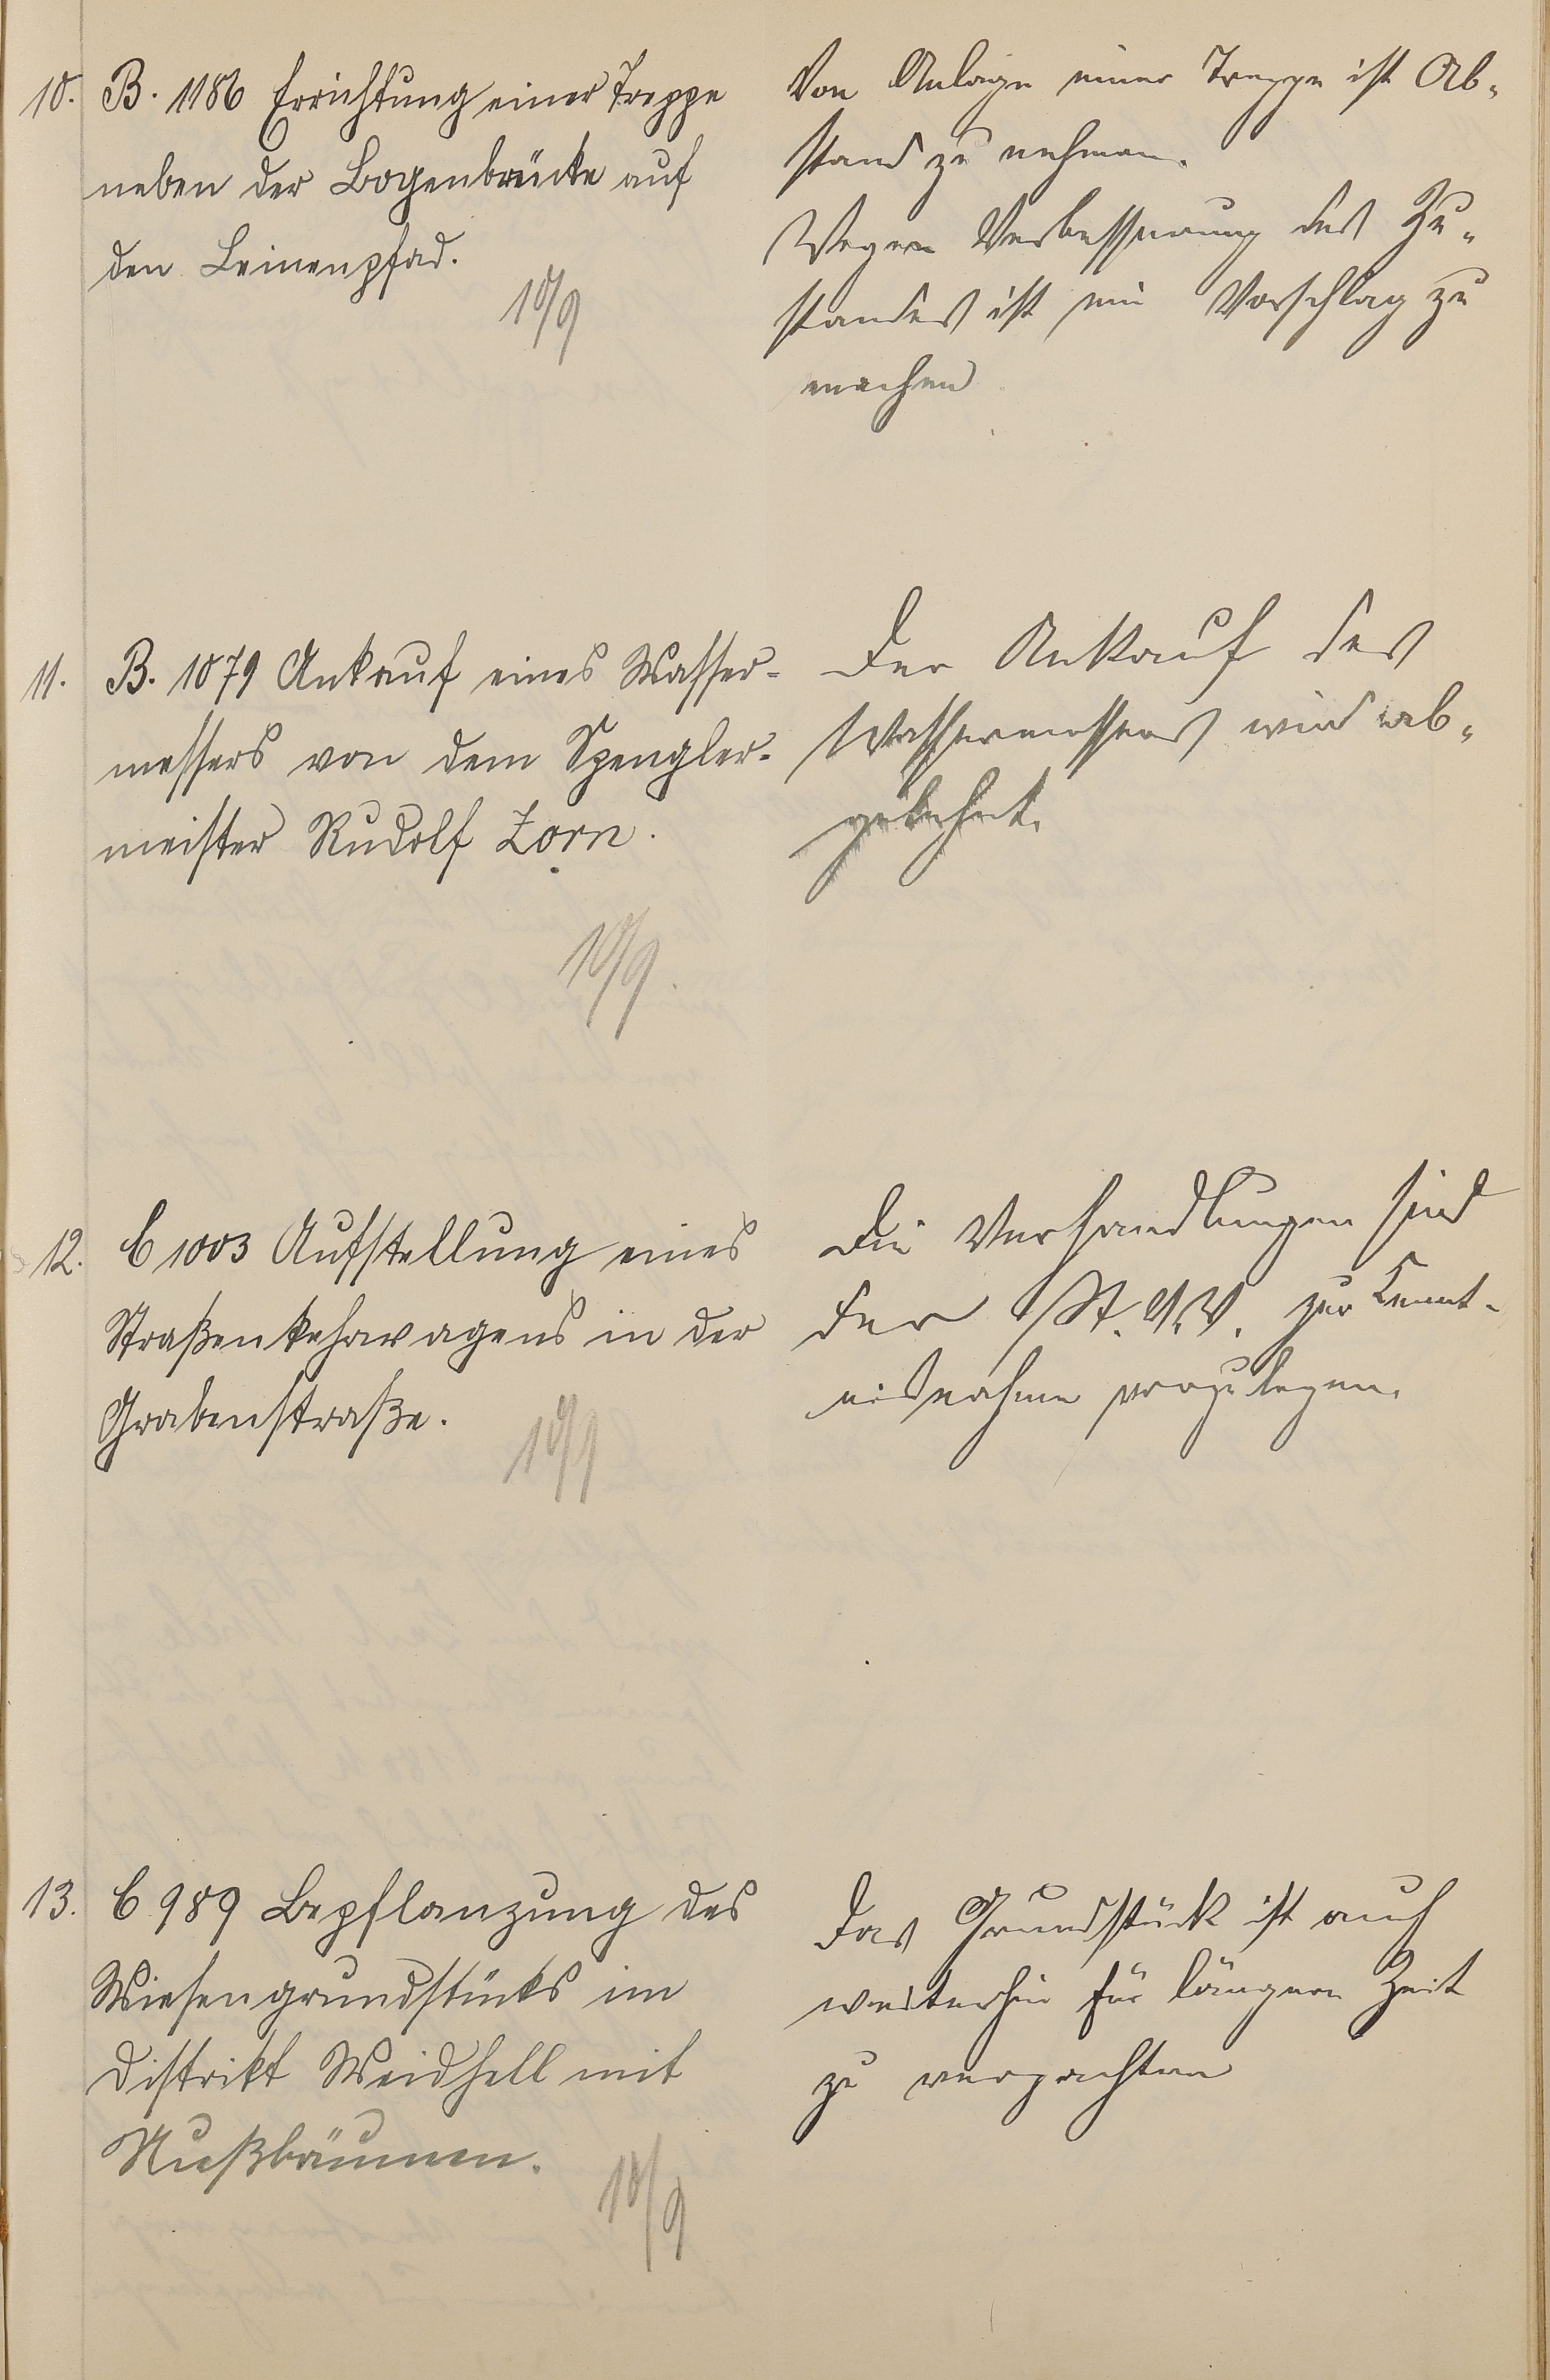 10. B. 1186 Errichtung einer Treppe
neben der Bogenbrücke auf
den Leinenpfad.
10/9
Von Anlage einer Treppe ist Ab-
stand zu nehmen.
Wegen Verbesserung des Zu-
standes ist ein Vorschlag zu
machen
11. B. 1079 Ankauf eines Wasser-
messers von dem Spengler-
meister Rudolf Zorn.
10/9.
Der Ankauf des
Wassermessers wird ab-
gelehnt.
12. C 1003 Aufstellung eines
Straßenkehrwagens in der
Grabenstraße.
10/9
Die Verhandlungen sind
der St. V. V. zur Kennt-
nisnahme vorzulegen.
13. C 989 Bepflanzung des
Wiesengrundstücks im
Distrikt Weidhell mit
Nußbäumen.
10/9
Das Grundstück ist auch
weiterhin für längere Zeit
zu verpachten